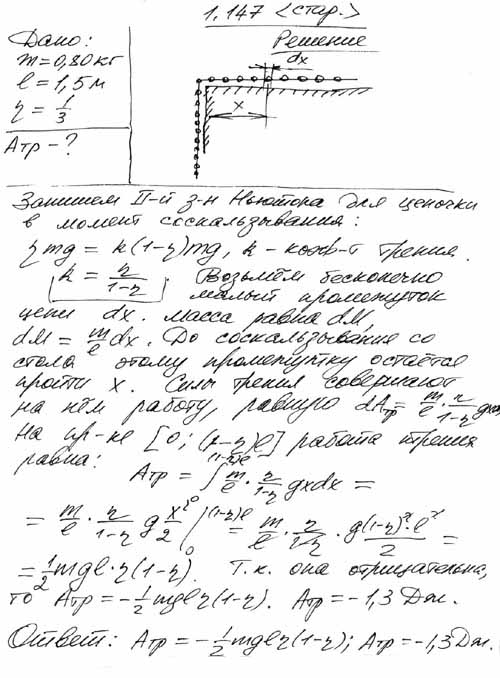 1.147 <стар.>
Дано:
m=0,80 кг
l = 1,5 м
η = 1/3
Aтр - ?
Решение
dx
x
Запишем II-й з-н Ньютона для цепочки
в момент соскальзывания:
ηmg = k(1-η)mg, k - коэф-т трения.
k = η/(1-η). Возьмём бесконечно
малый промежуток
цепи dx. масса равна dM,
dM = m/l dx. До соскальзывание со
стола этому промежутку остаётся
пройти x. Силы трения совершают
на нём работу, равную dAтр = m/l · η/(1-η) gxdx
На пр-ке [0; (1-η)l] работа трения
равна: Aтр = ∫₀^{(1-η)l} m/l · η/(1-η) gxdx =
= m/l · η/(1-η) g x²/2 |₀^{(1-η)l} = m/l · η/(1-η) · g(1-η)²·l²/2 =
= 1/2 mgl·η(1-η). Т.к. она отрицательна,
то Aтр = -1/2 mglη(1-η). Aтр = -1,3 Дж.
Ответ: Aтр = -1/2 mglη(1-η); Aтр = -1,3 Дж.